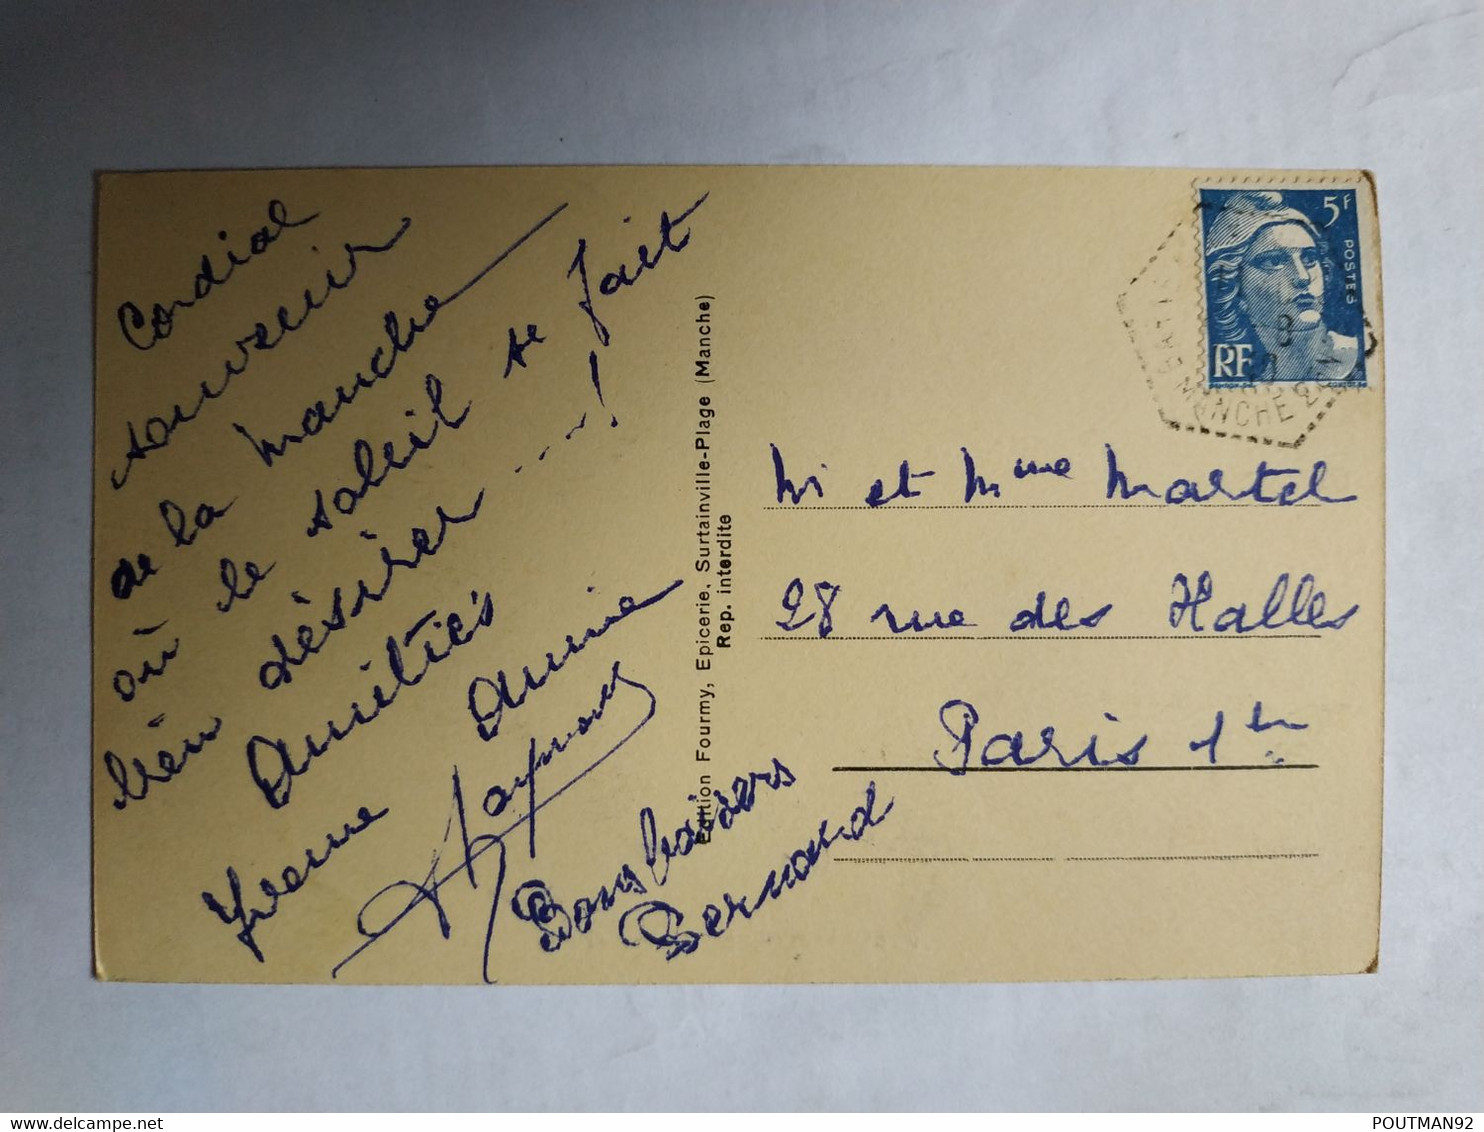 Cordial
souvenir
de la Manche
où le soleil se fait
bien désirer ----!
Amitiés
Yvonne Annie
Raymond
Bons baisers
Bernard
Edition Fourmy, Epicerie, Surtainville-Plage (Manche)
Rep. interdite
5F
POSTES
RF
MANCHE
Mr et Mme Martel
28 rue des Halles
Paris 1er
POUTMAN92
delcampe.net